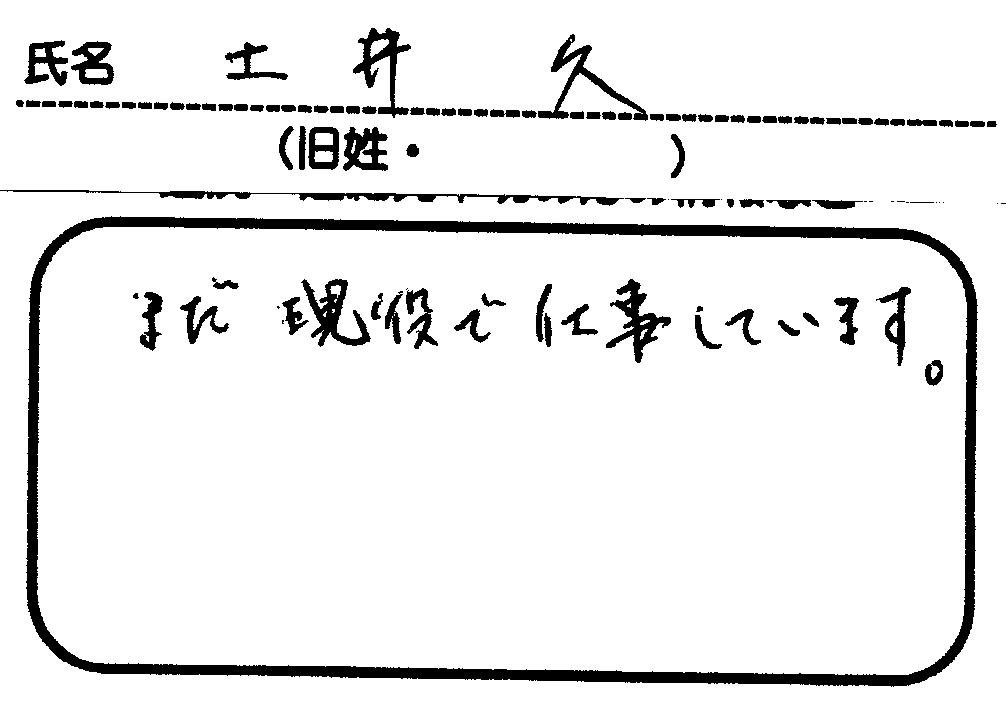 氏名 土井 久
(旧姓・ )
まだ現役で仕事しています。